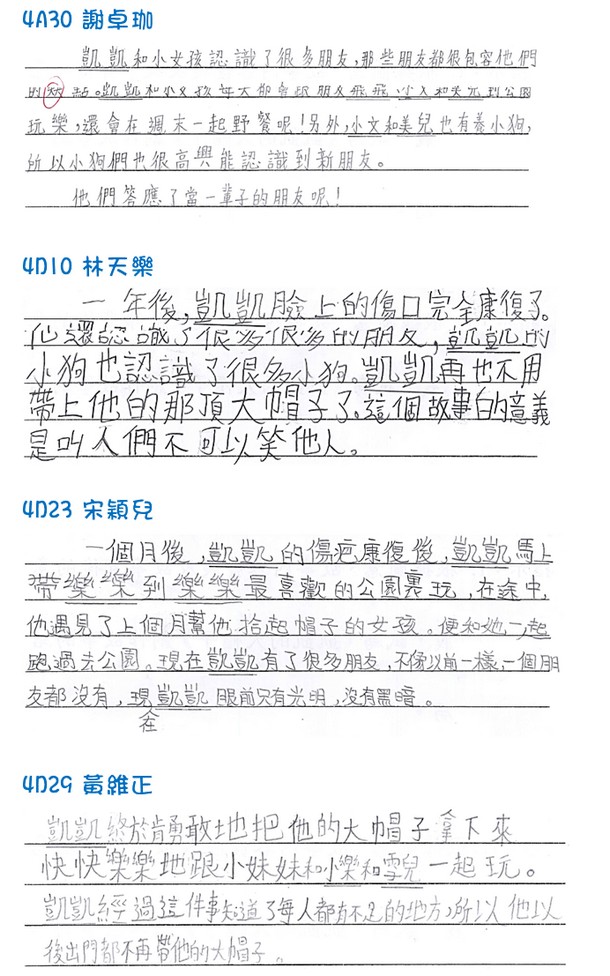 4A30 謝卓珈
凱凱和小女孩認識了很多朋友,那些朋友都很包容他們
的 點。凱凱和小女孩每天都會跟朋友飛飛、小文和美兒到公園
玩樂,還會在週末一起野餐呢!另外,小文和美兒也有養小狗,
所以小狗們也很高興能認識到新朋友。
他們答應了當一輩子的朋友呢!
4D10 林天樂
一年後,凱凱臉上的傷口完全康復了。
他還認識了很多很多的朋友,凱凱的
小狗也認識了很多小狗。凱凱再也不用
帶上他的那頂大帽子了。這個故事的意義
是叫人們不可以笑他人。
4D23 宋穎兒
一個月後,凱凱的傷疤康復後,凱凱馬上
帶樂樂到樂樂最喜歡的公園裏玩,在途中,
他遇見了上個月幫他拾起帽子的女孩。便和她一起
跑過去公園。現在凱凱有了很多朋友,不像以前一樣,一個朋
友都沒有,現凱凱眼前只有光明,沒有黑暗。
在
4D29 黃維正
凱凱終於肯勇敢地把他的大帽子拿下來
快快樂樂地跟小妹妹和小樂和雪兒一起玩。
凱凱經過這件事知道了每人都有不足的地方,所以他以
後出門都不再帶他的大帽子。